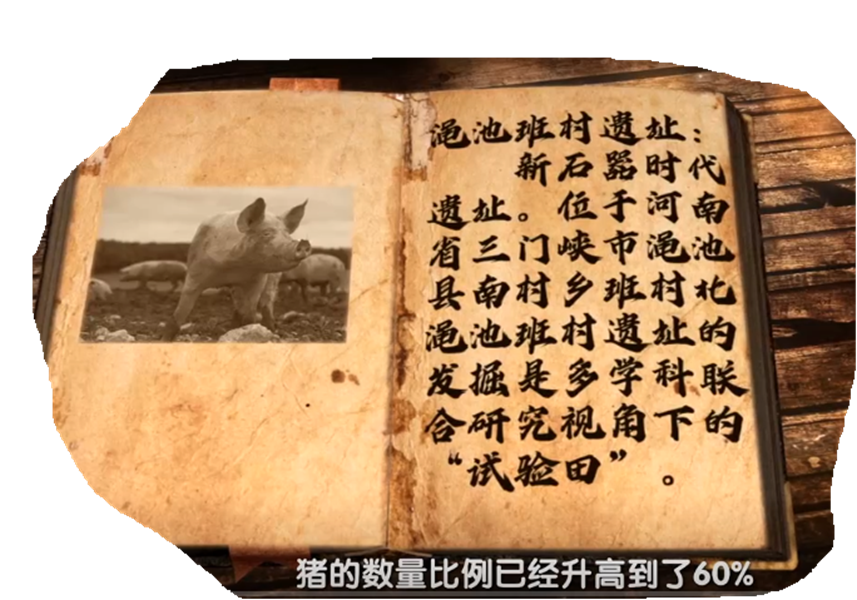 渑池班村遗址：
新石器时代
遗址。位于河南
省三门峡市渑池
县南村乡班村北
渑池班村遗址的
发掘是多学科联
合研究视角下的
“试验田”。
猪的数量比例已经升高到了60%